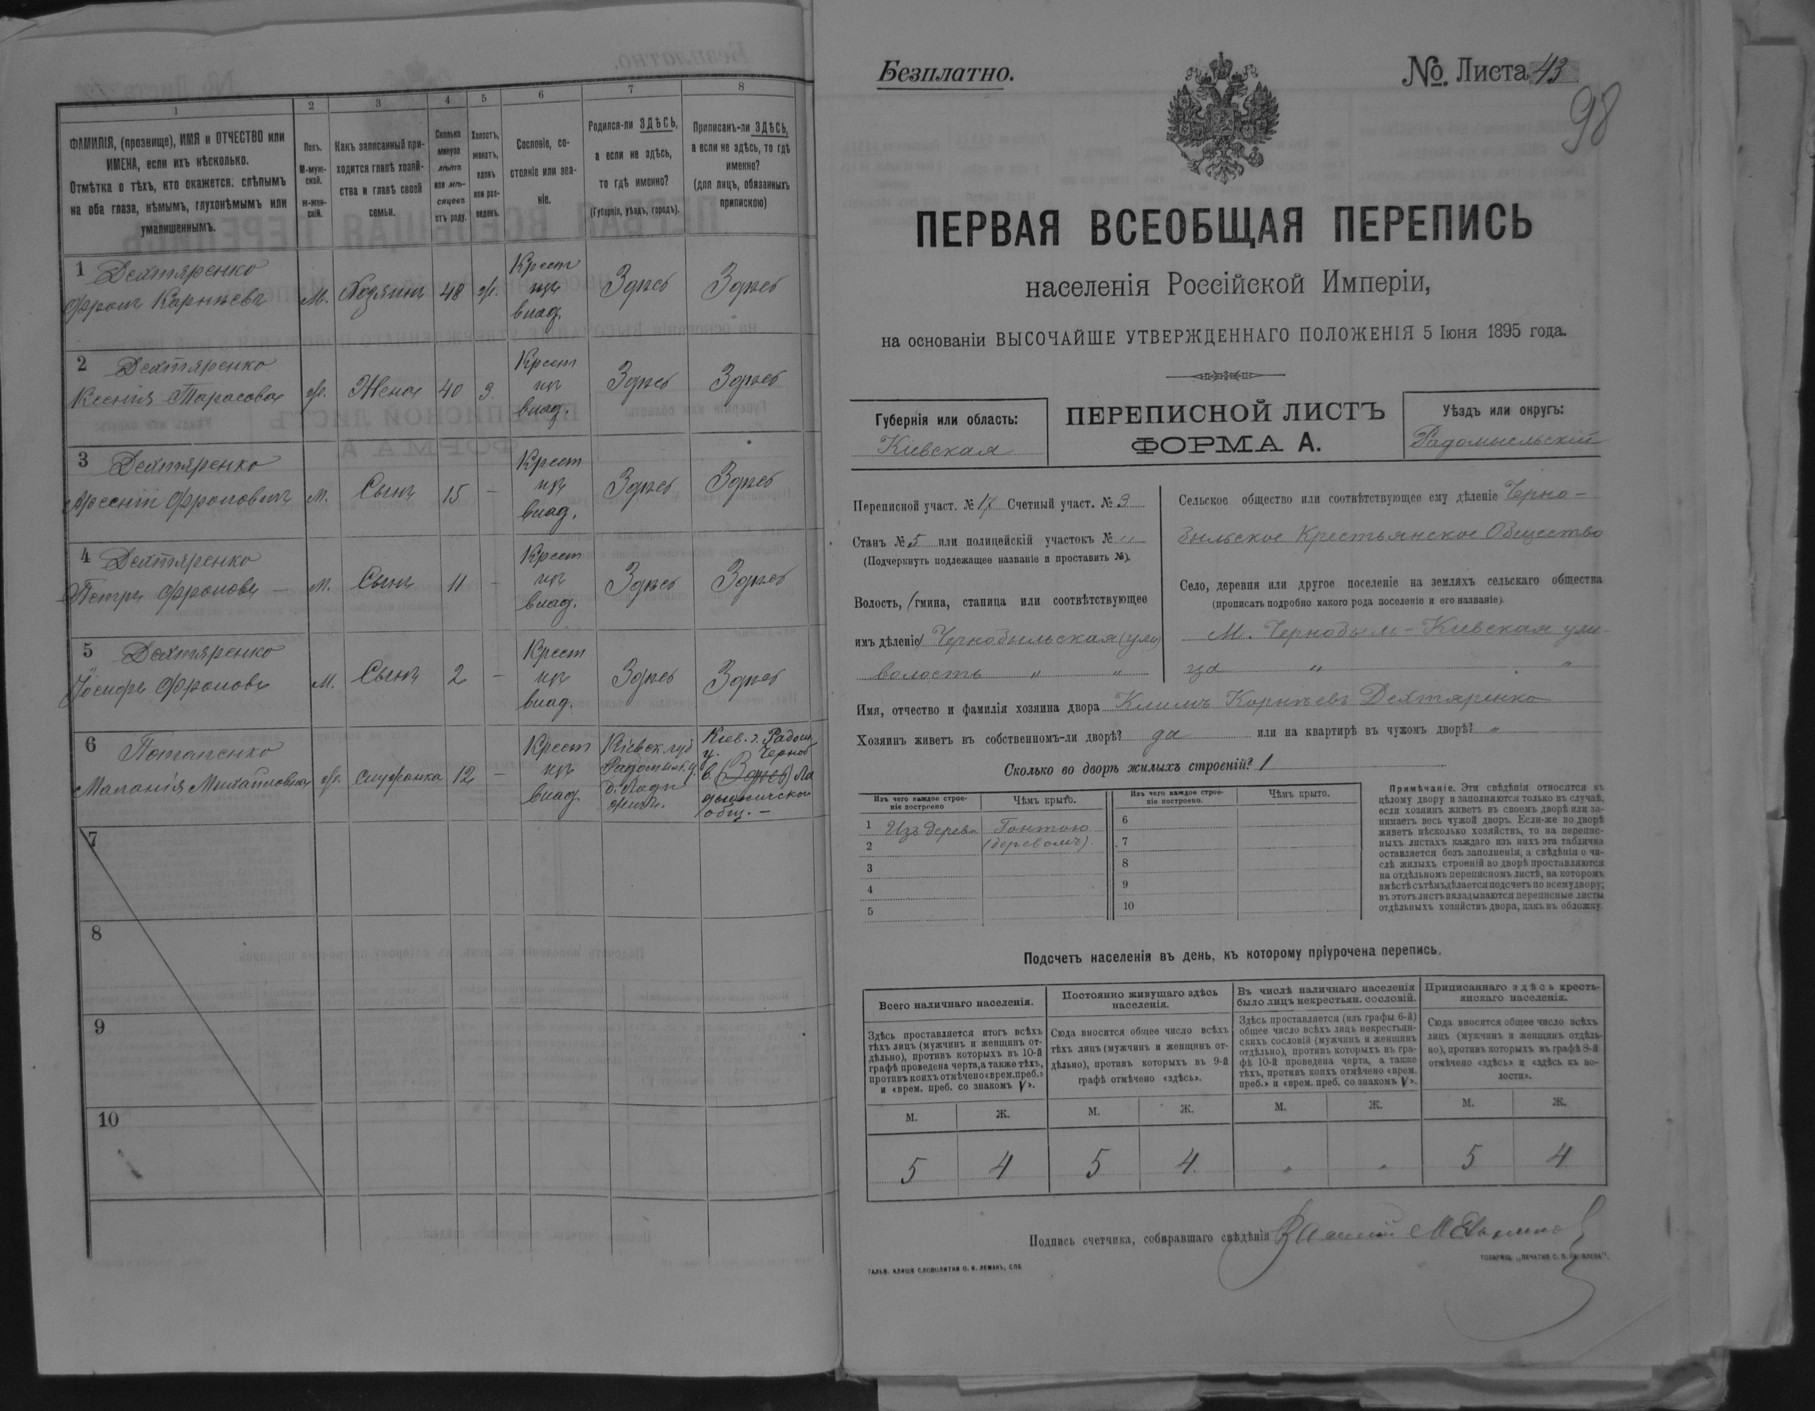 1
2
3
4
5
6
7
8
ФАМИЛІЯ, (прозвище), ИМЯ и ОТЧЕСТВО или
ИМЕНА, если ихъ нѣсколько.
Отмѣтка о тѣхъ, кто окажется: слѣпымъ
на оба глаза, нѣмымъ, глухонѣмымъ или
умалишеннымъ.
Полъ.
М-муж-
ской.
Ж-жен-
скій.
Какъ записанный при-
ходится главѣ хозяй-
ства и главѣ своей
семьи.
Сколько
минуло
лѣтъ
или мѣ-
сяцевъ
отъ роду.
Холостъ,
женатъ,
вдовъ
или раз-
веденъ.
Сословіе, со-
стояніе или зва-
ніе.
Родился-ли ЗДѢСЬ,
а если не здѣсь,
то гдѣ именно?
(Губернія, уѣздъ, городъ).
Приписанъ-ли ЗДѢСЬ,
а если не здѣсь, то гдѣ
именно?
(для лицъ, обязанныхъ
припискою)
1 Дехтяренко
Фролъ Карнѣевъ
М.
Хозяинъ
48
Крест
изъ
влад.
Здѣсь
Здѣсь
2 Дехтяренко
Ксенія Тарасова
Жена
40
З.
Крест
изъ
влад.
Здѣсь
Здѣсь
3 Дехтяренко
Арсеній Фроловичъ
М.
Сынъ
15
-
Крест
изъ
влад.
Здѣсь
Здѣсь
4 Дехтяренко
Петръ Фроловъ -
М.
Сынъ
11
-
Крест
изъ
влад.
Здѣсь
Здѣсь
5 Дехтяренко
Іосифъ Фроловъ
М.
Сынъ
2
-
Крест
изъ
влад.
Здѣсь
Здѣсь
6 Потапенко
Маланія Михайловна
служанка
12
-
Крест
изъ
влад.
Кіевск. губ
Радомысл. у.
Кіев. г. Радом
у. Черноб
в. (Здѣсь)
общ. -
7
8
9
10
Безплатно.
No. Листа 43
98
ПЕРВАЯ ВСЕОБЩАЯ ПЕРЕПИСЬ
населенія Россійской Имперіи,
на основаніи ВЫСОЧАЙШЕ УТВЕРЖДЕННАГО ПОЛОЖЕНІЯ 5 Іюня 1895 года.
Губернія или область:
Кіевская
ПЕРЕПИСНОЙ ЛИСТЪ
ФОРМА А.
Уѣздъ или округъ:
Радомысльскій
Переписной участ. № Счетный участ. № 3
Станъ № 5 или полицейскій участокъ № "
(Подчеркнуть подлежащее названіе и проставить №).
Волость, (гмина, станица или соотвѣтствующее
имъ дѣленіе) Чернобыльская
волость " "
Сельское общество или соотвѣтствующее ему дѣленіе Черно-
быльское Крестьянское Общество
Село, деревня или другое поселеніе на земляхъ сельскаго общества
(прописать подробно какого рода поселеніе и его названіе).
М. Чернобыль - Кіевская ули-
ца " "
Имя, отчество и фамилія хозяина двора Климъ Корнѣевъ Дехтяренко
Хозяинъ живетъ въ собственномъ-ли дворѣ? да или на квартирѣ въ чужомъ дворѣ? "
Сколько во дворѣ жилыхъ строеній? 1
Изъ чего каждое строе-
ніе построено
Чѣмъ крыто.
1 Изъ дерева Гонтою
2 (деревомъ).
3
4
5
Изъ чего каждое строе-
ніе построено.
Чѣмъ крыто.
6
7
8
9
10
Примѣчаніе. Эти свѣдѣнія относятся къ
цѣлому двору и заполняются только въ случаѣ,
если хозяинъ живетъ въ своемъ дворѣ или за-
нимаетъ весь чужой дворъ. Если-же во дворѣ
живетъ нѣсколько хозяйствъ, то на перепис-
ныхъ листахъ каждаго изъ нихъ эта табличка
оставляется безъ заполненія, а свѣдѣнія о чи-
слѣ жилыхъ строеній во дворѣ проставляются
на отдѣльномъ переписномъ листѣ, на которомъ
вмѣстѣ съ тѣмъ дѣлается подсчетъ по всему двору;
въ этотъ листъ вкладываются переписные листы
отдѣльныхъ хозяйствъ двора, какъ въ обложку.
Подсчетъ населенія въ день, къ которому пріурочена перепись.
Всего наличнаго населенія.
Постоянно живущаго здѣсь
населенія.
Въ числѣ наличнаго населенія
было лицъ некрестьян. сословій.
Приписаннаго здѣсь кресть-
янскаго населенія.
Здѣсь проставляется итогъ всѣхъ
тѣхъ лицъ (мужчинъ и женщинъ от-
дѣльно), противъ которыхъ въ 10-й
графѣ проведена черта, а также тѣхъ,
противъ коихъ отмѣчено «врем. преб.»
и «врем. преб. со знакомъ V».
Сюда вносится общее число всѣхъ
тѣхъ лицъ (мужчинъ и женщинъ от-
дѣльно), противъ которыхъ въ 9-й
графѣ отмѣчено «здѣсь».
Здѣсь проставляется (изъ графы 6-й)
общее число всѣхъ лицъ некрестьян-
скихъ сословій (мужчинъ и женщинъ
отдѣльно), противъ которыхъ въ гра-
фѣ 10-й проведена черта, а также
тѣхъ, противъ коихъ отмѣчено «врем.
преб.» и «врем. преб. со знакомъ V».
Сюда вносится общее число всѣхъ
лицъ (мужчинъ и женщинъ отдѣль-
но), противъ которыхъ въ графѣ 8-й
отмѣчено «здѣсь» и «здѣсь къ во-
лости».
М. Ж. М. Ж. М. Ж. М. Ж.
5 4 5 4 " " 5 4
Подпись счетчика, собиравшаго свѣдѣнія
ГАЛЬВ. КЛИШЕ СЛОВОЛИТНИ О. И. ЛЕМАНЪ, СПБ.
ТОВАРИЩ. „ПЕЧАТНЯ С. П. ЯКОВЛЕВА".